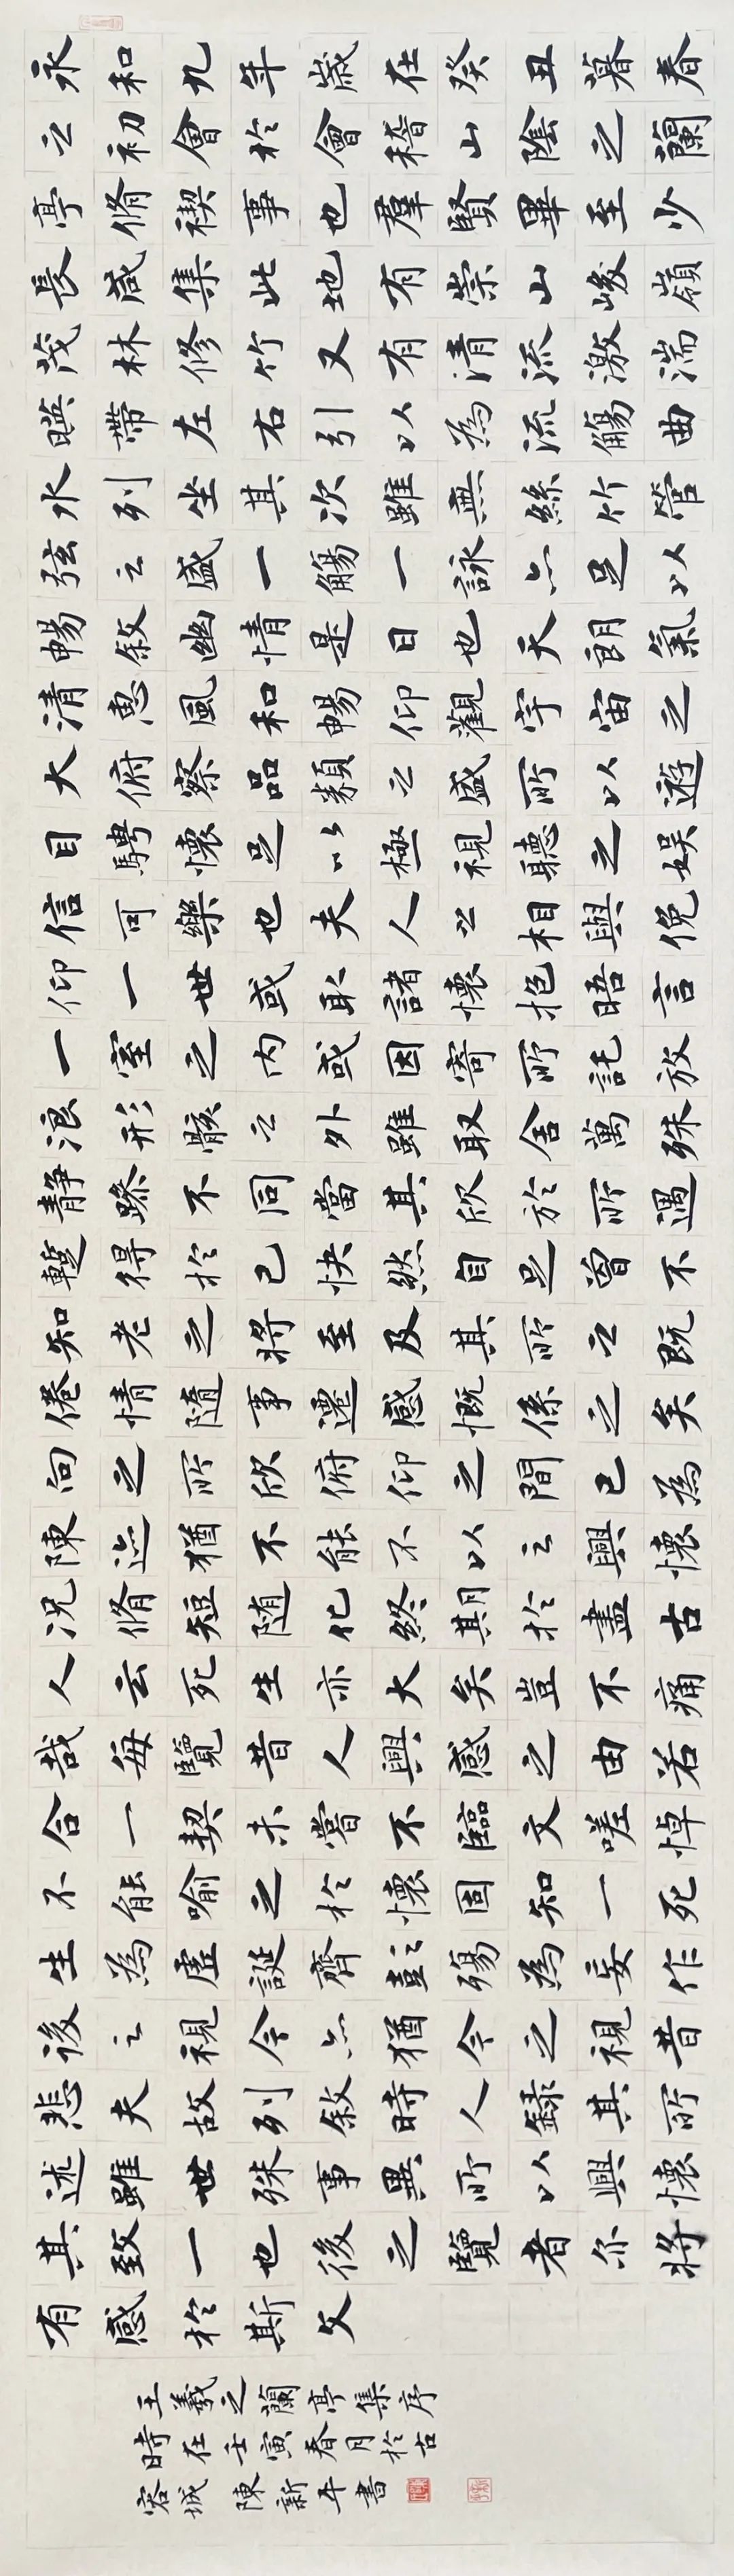 永和九年歲在癸丑暮春
之初會於會稽山陰之蘭
亭脩禊事也羣賢畢至少
長咸集此地有崇山峻嶺
茂林修竹又有清流激湍
暎帶左右引以為流觴曲
水列坐其次雖無絲竹管
弦之盛一觴一詠亦足以
暢敘幽情是日也天朗氣
清惠風和暢仰觀宇宙之
大俯察品類之盛所以遊
目騁懷足以極視聽之娛
信可樂也夫人之相與俛
仰一世或取諸懷抱晤言
一室之內或因寄所託放
浪形骸之外雖取舍萬殊
靜躁不同當其欣於所遇
蹔得於己快然自足曾不
知老之將至及其所之既
倦情隨事遷感慨係之矣
向之所欣俯仰之間已為
陳迹猶不能不以之興懷
況脩短随化終期於盡古
人云死生亦大矣豈不痛
哉每覽昔人興感之由若
合一契未嘗不臨文嗟悼
不能喻之於懷固知一死
生為虛誕齊彭殤為妄作
後之視今亦猶今之視昔
悲夫故列敘時人錄其所
述雖世殊事異所以興懷
其致一也後之覽者亦將
有感於斯文
王羲之蘭亭集序
時在壬寅春月於古
容城陳新平書